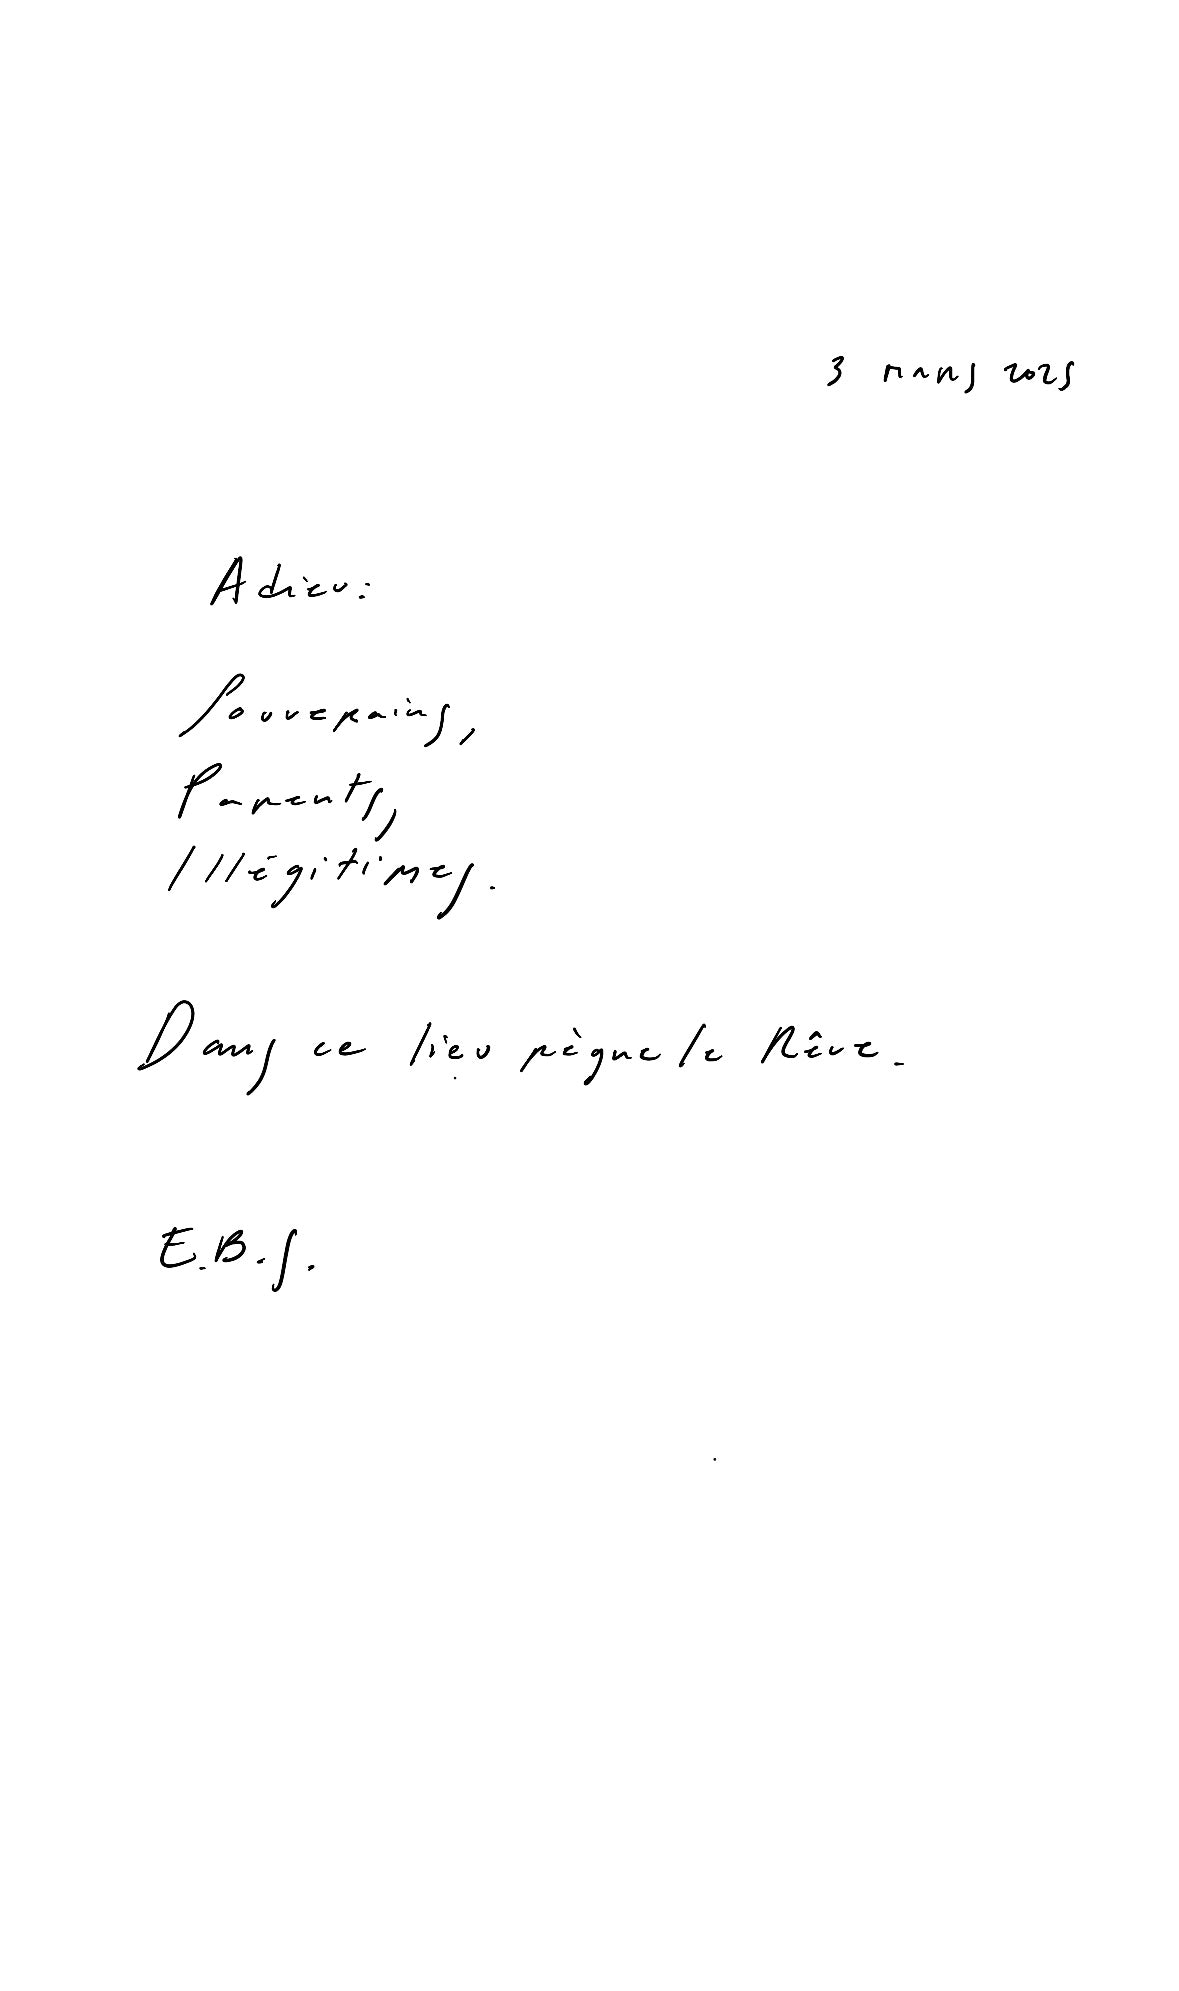 3 mars 2025
Adieu:
Souverains,
Parents,
Illégitimes.
Dans ce lieu règne le Rêve.
E.B.S.